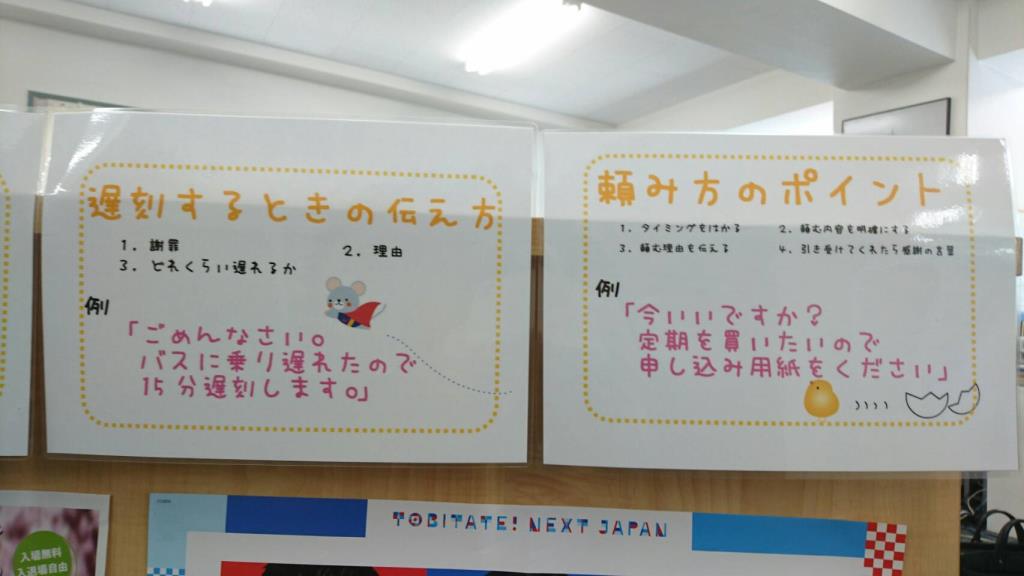 遅刻するときの伝え方
1. 謝罪 2. 理由
3. どれくらい遅れるか
例
「ごめんなさい。
バスに乗り遅れたので
15分遅刻します。」
頼み方のポイント
1. タイミングをはかる 2. 頼む内容を明確にする
3. 頼む理由を伝える 4. 引き受けてくれたら感謝の言葉
例
「今いいですか?
定期を買いたいので
申し込み用紙をください」
TOBITATE! NEXT JAPAN
入場無料
入退場自由